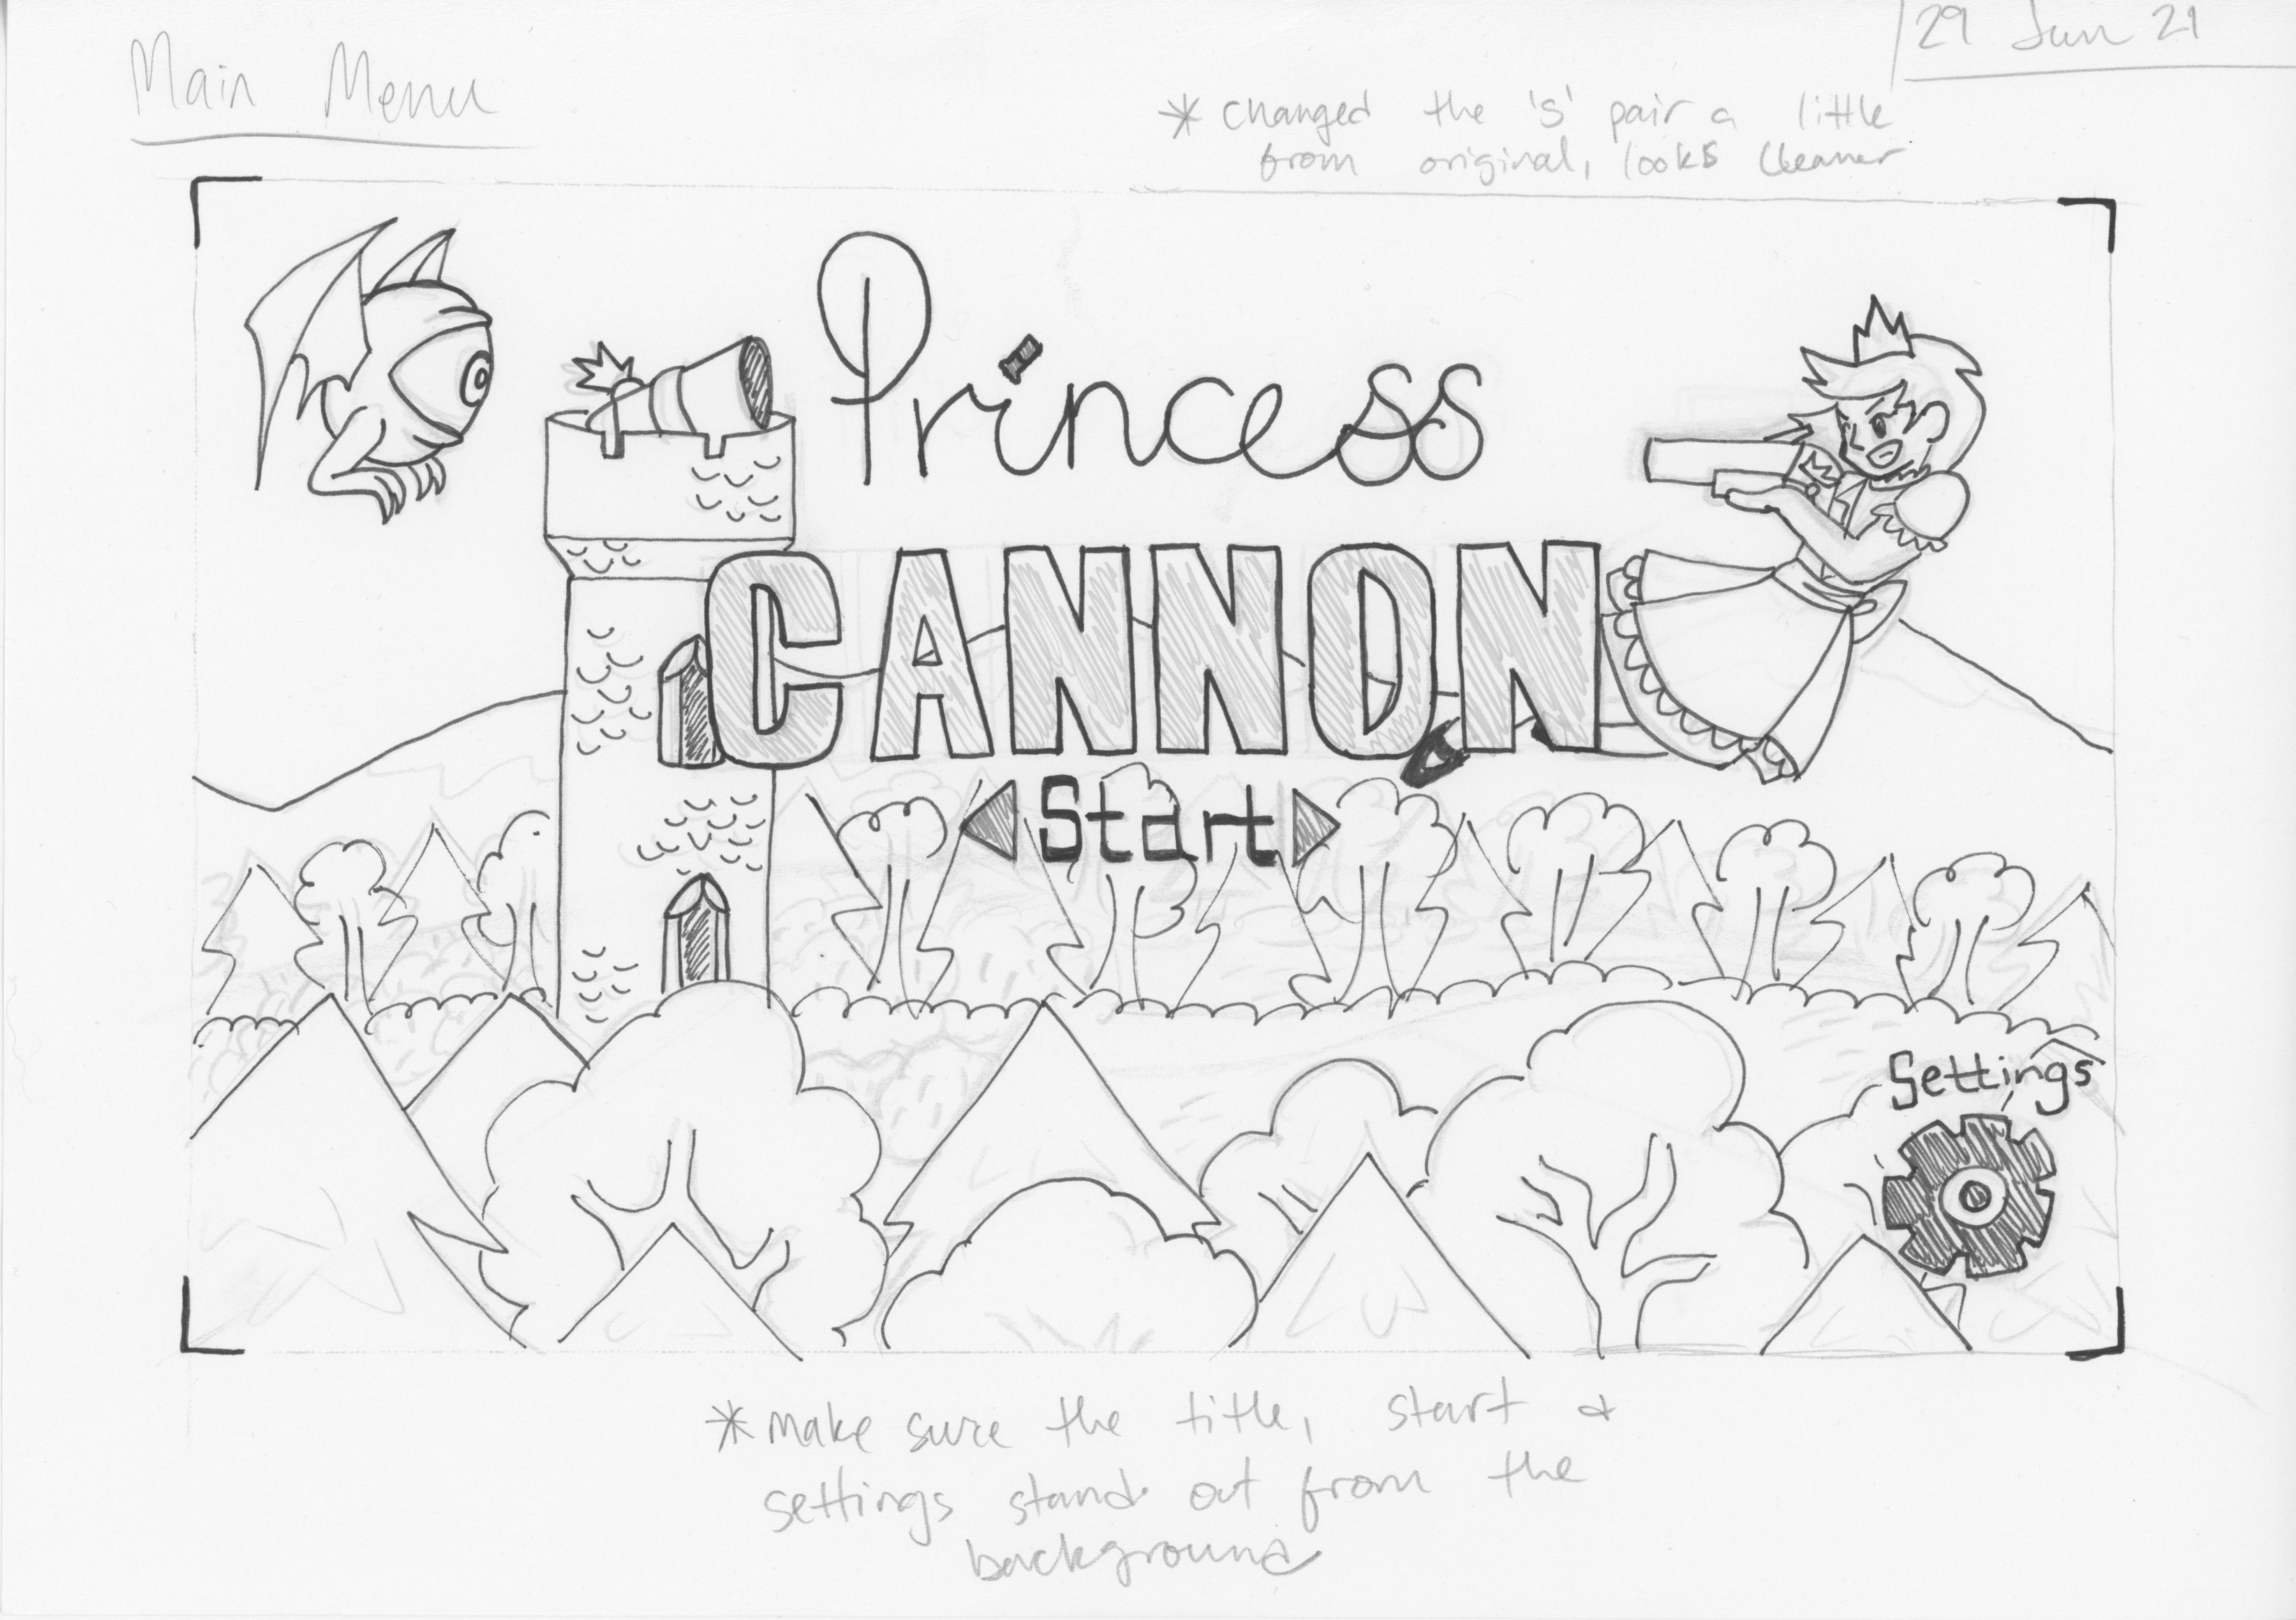 Main Menu
29 Jun 21
* changed the 's' pair a little
from original, looks cleaner
Princess
CANNON
Start
Settings
* make sure the title, start &
settings stand out from the
background